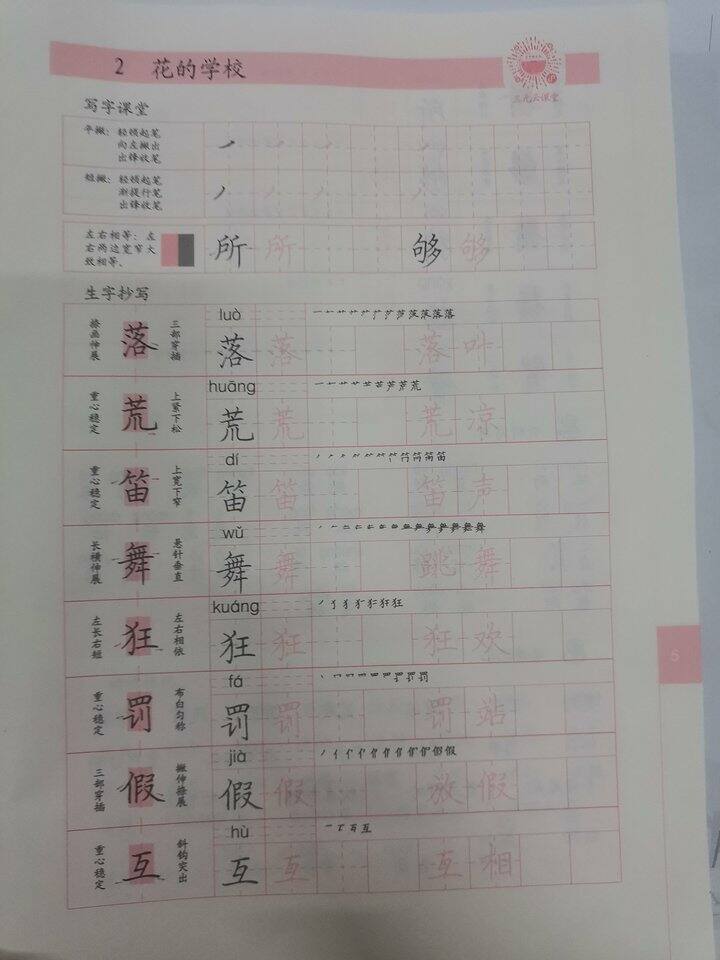 2 花的学校
三光云课堂
写字课堂
平撇：轻顿起笔
向左撇出
出锋收笔
短撇：轻顿起笔
渐提行笔
出锋收笔
左右相等：左
右两边宽窄大
致相等。
所 所 够 够
生字抄写
捺画伸展 落 三部穿插 luò 落 落 落 叶
重心稳定 荒 上紧下松 huāng 荒 荒 荒 凉
重心稳定 笛 上宽下窄 dí 笛 笛 笛 声
长横伸展 舞 悬针垂直 wǔ 舞 舞 跳 舞
左长右短 狂 左右相依 kuáng 狂 狂 狂 欢
重心稳定 罚 布白匀称 fá 罚 罚 罚 站
三部穿插 假 撇伸捺展 jià 假 假 放 假
重心稳定 互 斜钩突出 hù 互 互 互 相
5